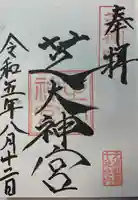 奉拝
芝大神宮
令和五年八月十二日